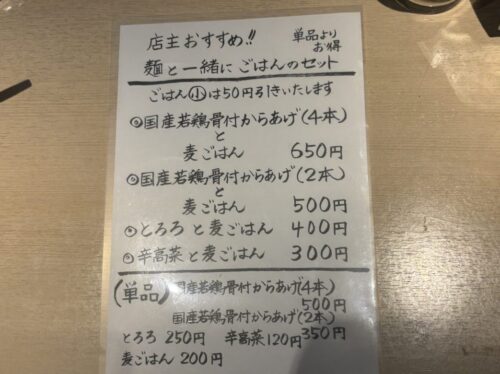 店主おすすめ!! 単品より
お得
麺と一緒にごはんのセット
ごはん小は50円引きいたします
◎国産若鶏骨付からあげ(4本)
と
麦ごはん 650円
◎国産若鶏骨付からあげ(2本)
と
麦ごはん 500円
◎とろろと麦ごはん 400円
◎辛高菜と麦ごはん 300円
(単品) 国産若鶏骨付からあげ(4本)
500円
国産若鶏骨付からあげ(2本)
350円
とろろ 250円 辛高菜 120円
麦ごはん 200円